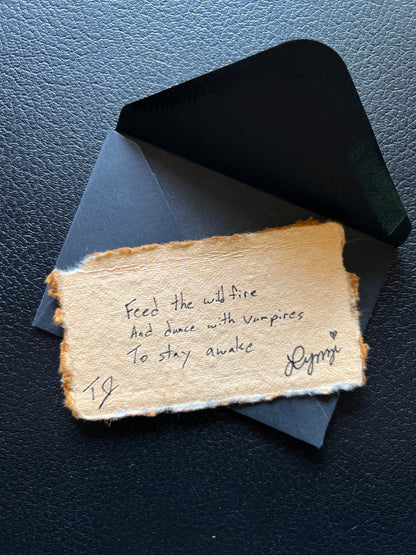 Feed the wild fire
And dance with vampires
To stay awake
TJ